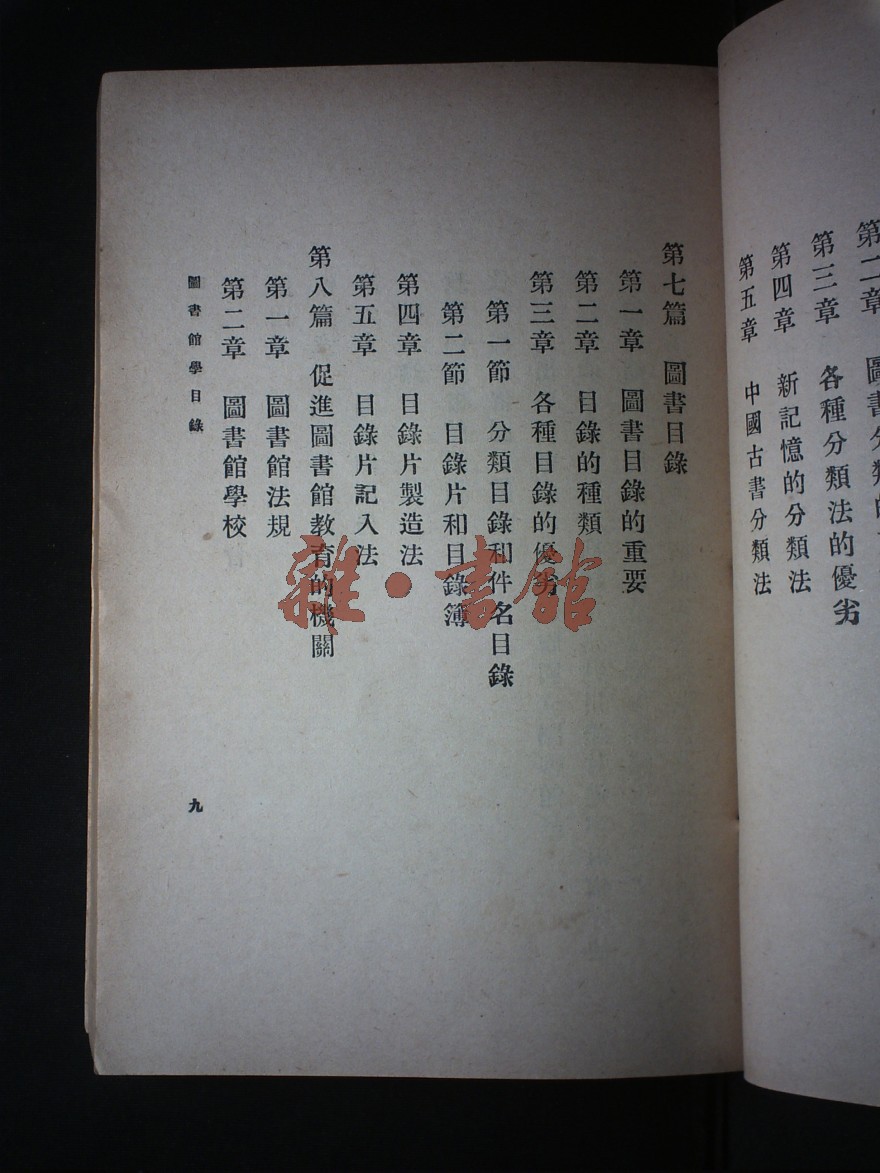 第二章 圖書分類的
第三章 各種分類法的優劣
第四章 新記憶的分類法
第五章 中國古書分類法
第七篇 圖書目錄
第一章 圖書目錄的重要
第二章 目錄的種類
第三章 各種目錄的優劣
第一節 分類目錄和件名目錄
第二節 目錄片和目錄簿
第四章 目錄片製造法
第五章 目錄片記入法
第八篇 促進圖書館教育的機關
第一章 圖書館法規
第二章 圖書館學校
圖書館學目錄
九
雜·書館